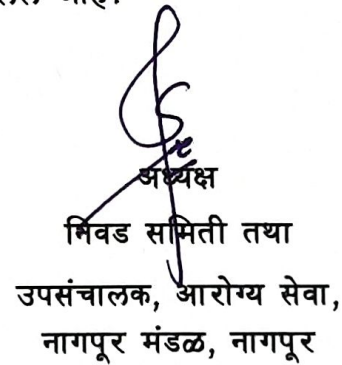 आहे.
अध्यक्ष
निवड समिती तथा
उपसंचालक, आरोग्य सेवा,
नागपूर मंडळ, नागपूर